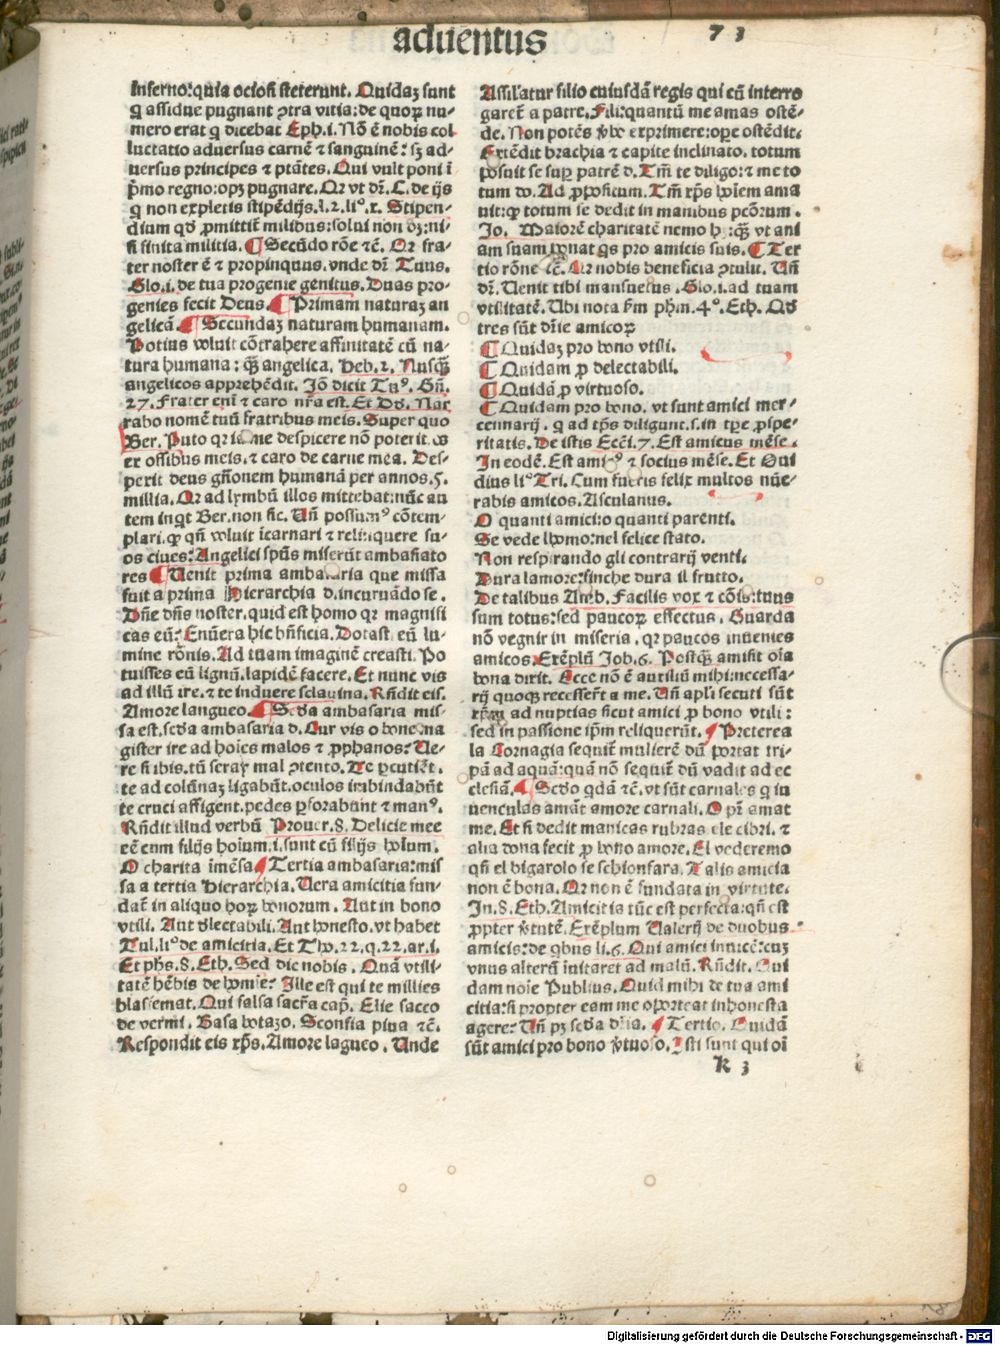 aduentus
73
inferno: quia ociosi steterunt. Quidaʒ sunt
q̄ assidue pugnant ꝯtra vitia: de quoꝝ nu⸗
mero erat q̄ dicebat Eph. i. Nō ē nobis col
luctatio aduersus carnē ⁊ sanguinē: sʒ ad⸗
uersus principes ⁊ ptātes. Qui vult poni ī
p̄mo regno: opʒ pugnare. Qꝛ vt dꝛ̄. C. de ijs
q̄ non expletis stipēdijs. l. 2. li°. x. Stipen⸗
dium qd̄ ꝓmittit̄ milibus: solui non dʒ: ni⸗
si finita militia. ¶ Secūdo rōe ⁊c̄. Qꝛ fra⸗
ter noster ē ⁊ propinquus. vnde dꝛ̄ Tuus.
Glo. i. de tua progenie genitus. Duas pro⸗
genies fecit Deus. ¶ Primam naturaʒ an
gelicā. ¶ Secundaʒ naturam humanam.
Potius voluit cōtrahere affinitatē cū na⸗
tura humana: qꝫ̄ angelica. Heb. 2. Nusqꝫ̄
angelicos apprehēdit. Jō dicit Tu⁹. Gn̄.
27. Frater eni̅ ⁊ caro nr̄a est. Et Dd̄. Nar
rabo nomē tuū fratribus meis. Super quo
Ber. Puto qꝛ me despicere nō poterit. os
ex ossibus meis. ⁊ caro de carne mea. Des⸗
perit deus gn̄onem humanā per annos. 5.
millia. Qꝛ ad lymbū illos mittebat: nūc au
tem inqt Ber. non sic. Un̄ possum⁹ cōtem⸗
plari. ꝙ qn̄ voluit īcarnari ⁊ relinquere su⸗
os ciues: Angelici spūs miserūt ambasiato
res ¶ Uenit prima ambasiaria que missa
fuit a prima Hierarchia d. incuruādo se.
Dn̄e dn̄s noster. quid est homo qꝛ magnifi
cas eū: Enūera hic bn̄ficia. Dotast. eū lu⸗
mine rōnis. Ad tuam imaginē creasti. Po
tuisses eū lignū. lapidē facere. Et nunc vis
ad illū ire. ⁊ te induere sclauina. Rn̄dit eis.
Amore langueo. ¶ Secda ambasaria mis⸗
sa est. secda ambasaria d. Cur vis o bone ma
gister ire ad hoīes malos ⁊ ꝓphanos: Ue⸗
re si ibis. tū seray mal ꝯtento. Te ꝑcutiēt.
te ad colūnaʒ ligabūt. oculos imbindabūt
te cruci affigent. pedes ꝑforabūt ⁊ man⁹.
Rn̄dit illud verbū Prouer. 8. Delicie mee
eē cum filijs hoīum. i. sunt cū filijs hoīum.
O charita īmēsa ¶ Tertia ambasaria: mis
sa a tertia hierarchia. Uera amicitia fun⸗
dat̄ in aliquo hoꝝ bonorum. Aut in bono
vtili. Aut ꝺlectabili. Aut honesto. vt habet
Tul. li° de amicitia. Et Tho. 22. q. 22. ar. i.
Et phs. 8. Eth. Sed dic nobis. Quā vtili⸗
tatē hēbis de homīe: Ille est qui te millies
blasfemat. Qui falsa sacr̄a cap̄. Elie sacco
de vermi. Basa botazo. Sconfia piua ⁊c̄.
Respondit eis xp̄s. Amore lāgueo. Unde
Assilatur filio cuiusdā regis qui cū interro
garet̄ a patre. Fili: quantū me amas ostē⸗
de. Non potēs v̄bo exprimere: oꝑe ostēdit.
Extēdit brachia ⁊ capite inclinato. totum
posuit se suꝑ patrē d. Tm̄ te diligo: ⁊ me to
tum do. Ad ꝓpositum. Tm̄ xp̄s hoīem ama
uit: ꝙ totum se dedit in manibus pctōrum.
Jo. Maiorē charitatē nemo hꝫ: qꝫ̄ vt ani
am suam ponat qs pro amicis suis. ¶ Ter
tio rōne ⁊c̄. Qꝛ nobis beneficia ꝯtulit. Un̄
dꝛ̄. Uenit tibi mansuetus. Glo. i. ad tuam
vtilitatē. Ubi nota s̄m phm̄. 4°. Eth. Qd̄
tres sūt dr̄ie amicoꝝ
¶ Quidaʒ pro bono vtili.
¶ Quidam ꝓ delectabili.
¶ Quidā ꝓ virtuoso.
¶ Quidam pro bono. vt sunt amici mer⸗
cennarij. q̄ ad tp̄s diligunt. s. in tp̄e ꝓspe⸗
ritatis. De istis Ecci̅. 7. Est amicus mēse.
In eodē. Est amic⁹ ⁊ socius mēse. Et Oui
dius li° Tri. Cum fueris felix multos nūe⸗
rabis amicos. Asculanus.
O quanti amici: o quanti parenti.
Se vede lhomo: nel felice stato.
Non respirando gli contrarij venti.
Dura lamore: finche dura il frutto.
De talibus Amb. Facilis vox ⁊ cōis: tuus
sum totus: sed paucoꝝ effectus. Guarda
nō vegnir in miseria. qꝛ paucos inuenies
amicos. Exēplū Job. 6. Postqꝫ̄ amisit oīa
bona dixit. Ecce nō ē auxiliū mihi: necessa⸗
rij quoqꝫ recesser̄t a me. Un̄ apl̄i secuti sūt
xp̄m ad nuptias sicut amici ꝓ bono vtili:
sed in passione ip̄m reliquerūt. ¶ Preterea
la Cornagia sequit̄ mulierē dū portat tri⸗
pā ad aquā: quā nō sequit̄ dū vadit ad ec
clesiā. ¶ Scd̄o qdā ⁊c̄. vt sūt carnales q̄ iu
uenculas amāt amore carnali. O pr̄ amat
me. Et si dedit manicas rubras ele cibri. ⁊
alia dona fecit ꝓ bono amore. El vederemo
qn̄ el bigarolo se schionfara. Talis amicia
non ē bona. Qꝛ non ē fundata in virtute.
In. 8. Eth. Amicitia tūc est perfecta: qn̄ est
ꝓpter v̄tutē. Exēplum Ualerij de duobus
amicis: de qbus li. 6. Qui amici inuicē: cuʒ
vnus alterū īuitaret ad malū. Rn̄dit. Qui
dam noīe Publius. Quid mihi de tua ami
citia: si propter eam me oporteat inhonesta
agere: Un̄ pʒ secda dr̄ia. ¶ Tertio. Quidā
sūt amici pro bono v̄tuoso. Isti sunt qui oī
k 3
Digitalisierung gefördert durch die Deutsche Forschungsgemeinschaft - DFG